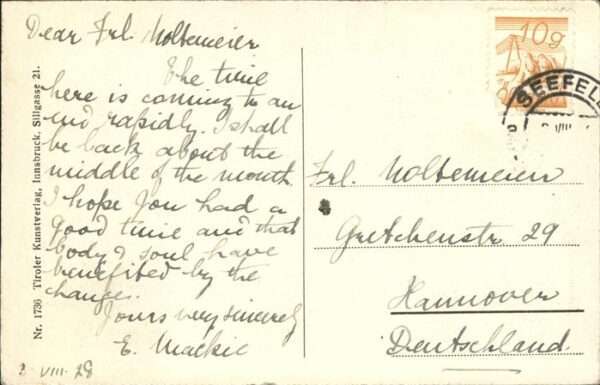 Dear Frl. Moltemeier
The time
here is coming to an
end rapidly. I shall
be back about the
middle of the month.
I hope you had a
good time and that
body & soul have
benefited by the
change.
Yours very sincerely
E. Mackie
VIII 28
Nr. 1736 Tiroler Kunstverlag, Innsbruck, Sillgasse 21.
10g
SEEFEL
VIII
Frl. Moltemeier
Gretchenstr. 29
Hannover
Deutschland.